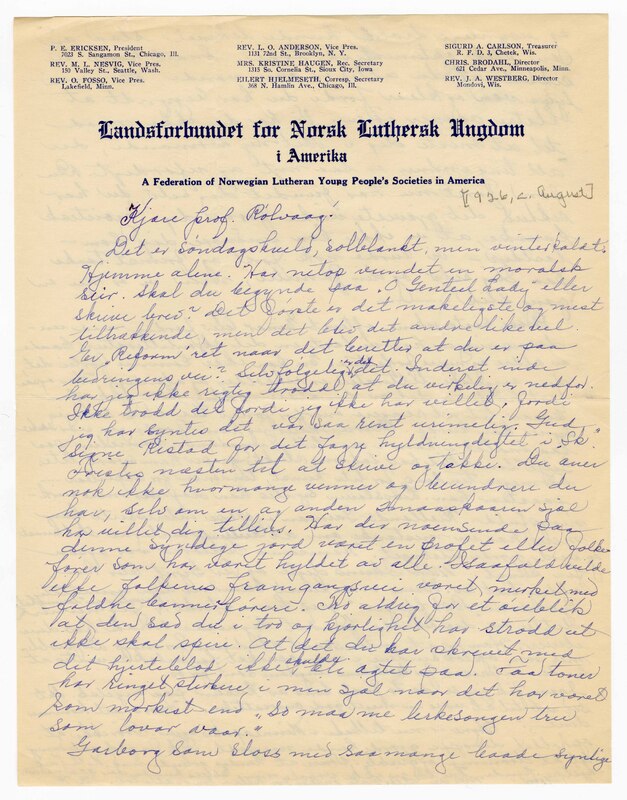 P. E. ERICKSEN, President
7023 S. Sangamon St., Chicago, Ill.
REV. M. L. NESVIG, Vice Pres.
150 Valley St., Seattle, Wash.
REV. O. FOSSO, Vice Pres.
Lakefield, Minn.
REV. L. O. ANDERSON, Vice Pres.
1131 72nd St., Brooklyn, N. Y.
MRS. KRISTINE HAUGEN, Rec. Secretary
1313 So. Cornelia St., Sioux City, Iowa
EILERT HJELMESETH, Corresp. Secretary
368 N. Hamlin Ave., Chicago, Ill.
SIGURD A. CARLSON, Treasurer
R. F. D. 3, Chetek, Wis.
CHRIS. BRODAHL, Director
621 Cedar Ave., Minneapolis, Minn.
REV. J. A. WESTBERG, Director
Mondovi, Wis.
Landsforbundet for Norsk Luthersk Ungdom
i Amerika
A Federation of Norwegian Lutheran Young People's Societies in America
[1926, c. August]
Kjære prof. Rølvaag!
Det er søndagskveld, solblankt, men vinterkaldt.
Hjemme alene. Har netop vundet en moralsk
seir. Skal du begynde paa "O Genteel Lady" eller
skrive brev? Det første er det makeligste og mest
tiltrækkende, men det blev det andre likevel.
Er "Reform" ret naar det beretter at du er paa
bedringens vei? Selvfølgelig er det det. Inderst inde
har jeg ikke rigtig trodd at du virkelig er nedfor.
Ikke trodd det fordi jeg ikke har villet, fordi
jeg har syntes det var saa rent urimelig. Gud
signe Ristad for det fagre hyldningsdigtet i "Sk."
Fristes næsten til at skrive og takke. Du aner
nok ikke hvormange venner og beundrere du
har, selv om en og anden smaaskaaren sjæl
har villet dig tillivs. Har der noensinde paa
denne syndige jord været en profet eller folke-
fører som har været hyldet av alle. Isaafald vilde
ikke folkenes framgangsvei været merket med
faldne bannerførere. Tro aldrig for et øieblik
at den sæd du i tro og kjærlighet har strødd ut
ikke skal spire. At det du har skrevet med
dit hjerteblod ikke skulde bli agtet paa. Faa toner
har ringet sterkere i min sjæl naar det har været
som mørkest end "So maa me lerkesongen tru
som lovar vaar."
Garborg som sloss med saamange baade synlige